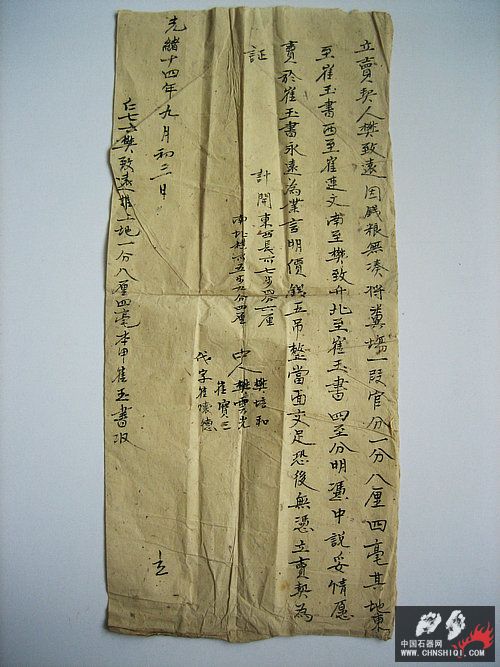 立賣契人樊致遠因錢粮無湊將糞塲一段官分一分八厘四毫其地東
至崔玉書西至崔建文南至樊致升北至崔玉書四至分明憑中說妥情愿
賣於崔玉書永遠為業言明價錢五吊整當面交足恐後無憑立賣契為
証
計開東西長可七步
南北橫可五步五分四厘
中人
樊培和
樊雲光
崔寶三
代字崔懷德
光緒十四年九月初三日
立
仁七六樊致遠推上地一分八厘四毫本甲崔玉書收
中国石器网
WWW.CHNSHIQI.COM